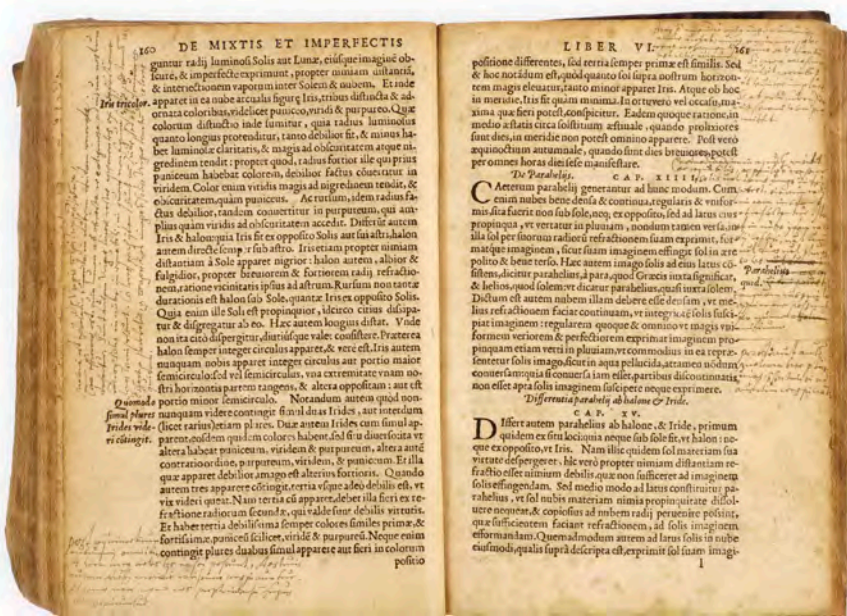 160 DE MIXTIS ET IMPERFECTIS
guntur radij luminosi Solis aut Lunæ, eiúsque imaginē ob-
scurè, & imperfectè exprimunt, propter nimiam distantiā,
& interiectionem vaporum inter Solem & nubem. Et inde
Iris tricolor.
apparet in ea nube arcualis figurę Iris, tribus distincta & ad-
ornata coloribus, videlicet puniceo, viridi & purpureo. Quæ
colorum distinctio inde sumitur, quia radius luminosus
quanto longius protenditur, tanto debilior fit, & minus ha-
bet luminosæ claritatis, & magis ad obscuritatem atque ni-
gredinem tendit: propter quod, radius fortior ille qui prius
puniceum habebat colorem, debilior factus cōuertitur in
viridem. Color enim viridis magis ad nigredinem tendit, &
obscuritatem, quàm puniceus. Ac rursum, idem radius fa-
ctus debilior, tandem conuertitur in purpureum, qui am-
plius quam viridis ad obscuritatem accedit. Differūt autem
Iris & halon: quia Iris fit ex opposito Solis aut sui astri, halon
autem directè semper sub astro. Iris etiam propter nimiam
distantiam à Sole apparet nigrior: halon autem, albior &
fulgidior, propter breuiorem & fortiorem radij refractio-
nem, ratione vicinitatis ipsius ad astrum. Rursum non tantæ
durationis est halon sub Sole, quantæ Iris ex opposito Solis.
Quia enim ille Soli est propinquior, idcirco citius dissipa-
tur & disgregatur ab eo. Hæc autem longius distat. Vnde
non ita citò dispergitur, diutiúsque valet consistere. Præterea
halon semper integer circulus apparet, & verè est. Iris autem
nunquam nobis apparet integer circulus aut portio maior
semicirculo, sed vel semicirculus, vna extremitate vnam no-
stri horizontis partem tangens, & altera oppositam: aut est
Quomodo simul plures Irides vide- ri cōtingit.
portio minor semicirculo. Notandum autem quòd non-
nunquam videre contingit simul duas Irides, aut interdum
(licet rarius) etiam plures. Duæ autem Irides cum simul ap-
parent, eosdem quidem colores habent, sed situ diuerso: ita vt
altera habeat puniceum, viridem & purpureum, altera autē
contrario ordine, purpureum, viridem, & puniceum. Et illa
quæ apparet debilior, imago est alterius fortioris. Quando
autem tres apparere cōtingit, tertia vsque adeò debilis est, vt
vix videri queat. Nam tertia cū apparet, debet illa fieri ex re-
fractione radiorum secundæ, qui valde sunt debilis virtutis.
Et habet tertia debilissima semper colores similes primæ, &
fortissimæ, puniceū scilicet, viridē & purpureū. Neque enim
contingit plures duabus simul apparere aut fieri in colorum
positio
LIBER VI. 161
positione differentes, sed tertia semper primæ est similis. Sed
& hoc notādum est, quòd quanto sol supra nostrum horizon-
tem magis eleuatur, tanto minor apparet Iris. Atque ob hoc
in meridie, Iris fit quàm minima. In ortu verò vel occasu, ma-
xima quæ fieri potest, conspicitur. Eadem quoque ratione, in
medio æstatis circa solstitium æstiuale, quando prolixiores
sunt dies, in meridie non potest omnino apparere. Post verò
æquinoctium autumnale, quando sunt dies breuiores, potest
per omnes horas diei sese manifestare.
De Parahelijs. CAP. XIIII.
CAeterum parahelij generantur ad hunc modum. Cum
enim nubes bene densa & continua, regularis & vnifor-
mis, sita fuerit non sub sole, neq; ex opposito, sed ad latus eius
propinqua, vt vertatur in pluuiam, nondum tamen versa, in
illa sol per suorum radiorū refractionem suam exprimit, for-
matque imaginem, sicut suam imaginem effingit sol in ære
polito & bene terso. Hæc autem imago solis ad eius latus cō-
Parahelius quid.
sistens, dicitur parahelius, à para, quod Græcis iuxta significat,
& helios, quod solem: vt dicatur parahelius, quasi iuxta solem.
Dictum est autem nubem illam debere esse densam, vt me-
lius refractionem faciat continuam, vt integrè solis susci-
piat imaginem: regularem quoque & omnino vt magis vni-
formem veriorem & perfectiorem exprimat imaginem pro-
pinquam etiam verti in pluuiam, vt commodius in ea repræ-
sentetur solis imago, sicut in aqua pellucida, attamen nōdum
conuersam: quia si conuersa iam esset, partibus discontinuatis,
non esset apta solis imaginem suscipere neque exprimere.
Differentia parahelij ab halone & Iride.
CAP. XV.
DIffert autem parahelius ab halone, & Iride, primum
quidem ex situ loci: quia neque sub sole fit, vt halon: ne-
que ex opposito, vt Iris. Nam illic quidem sol materiam sua
virtute despergeret, hîc verò propter nimiam distantiam re-
fractio esset nimium debilis, quæ non sufficeret ad imaginem
solis effingendam. Sed medio modo ad latus constituitur pa-
rahelius, vt sol nubis materiam nimia propinquitate dissol-
uere nequeat, & copiosius ad nubem radij peruenire possint,
quæ sufficientem faciant refractionem, ad solis imaginem
efformandam. Quemadmodum autem ad latus solis in nube
eiusmodi, qualis suprà descripta est, exprimit sol suam imagi-
l